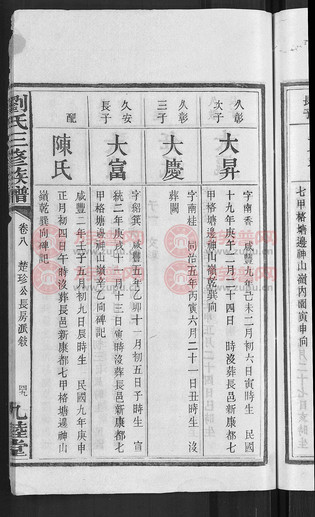 七甲楁塘邊神山嶺內園寅申向
久彰
次子
大昇
字南香 咸豐九年己未二月初六日寅時生 民國
十九年庚午二月二十四日 時沒葬長邑新康都七
甲楁塘邊神山嶺乾巽向
久彰
三子
大慶
字南桂 同治五年丙寅六月二十一日丑時生 沒
葬闕
久安
長子
大富
字紹箕 咸豐五年乙卯十一月初五日子時生 宣
統二年庚戌十一月十三日寅時沒葬長邑新康都七
甲楁塘邊神山嶺辛乙向碑記
配
陳氏
咸豐二年壬子五月初九日辰時生 民國九年庚申
正月初四日午時沒葬長邑新康都七甲楁塘邊神山
嶺乾巽向碑記
劉氏三修族譜
卷八 楚珍公長房派敘
九睦堂